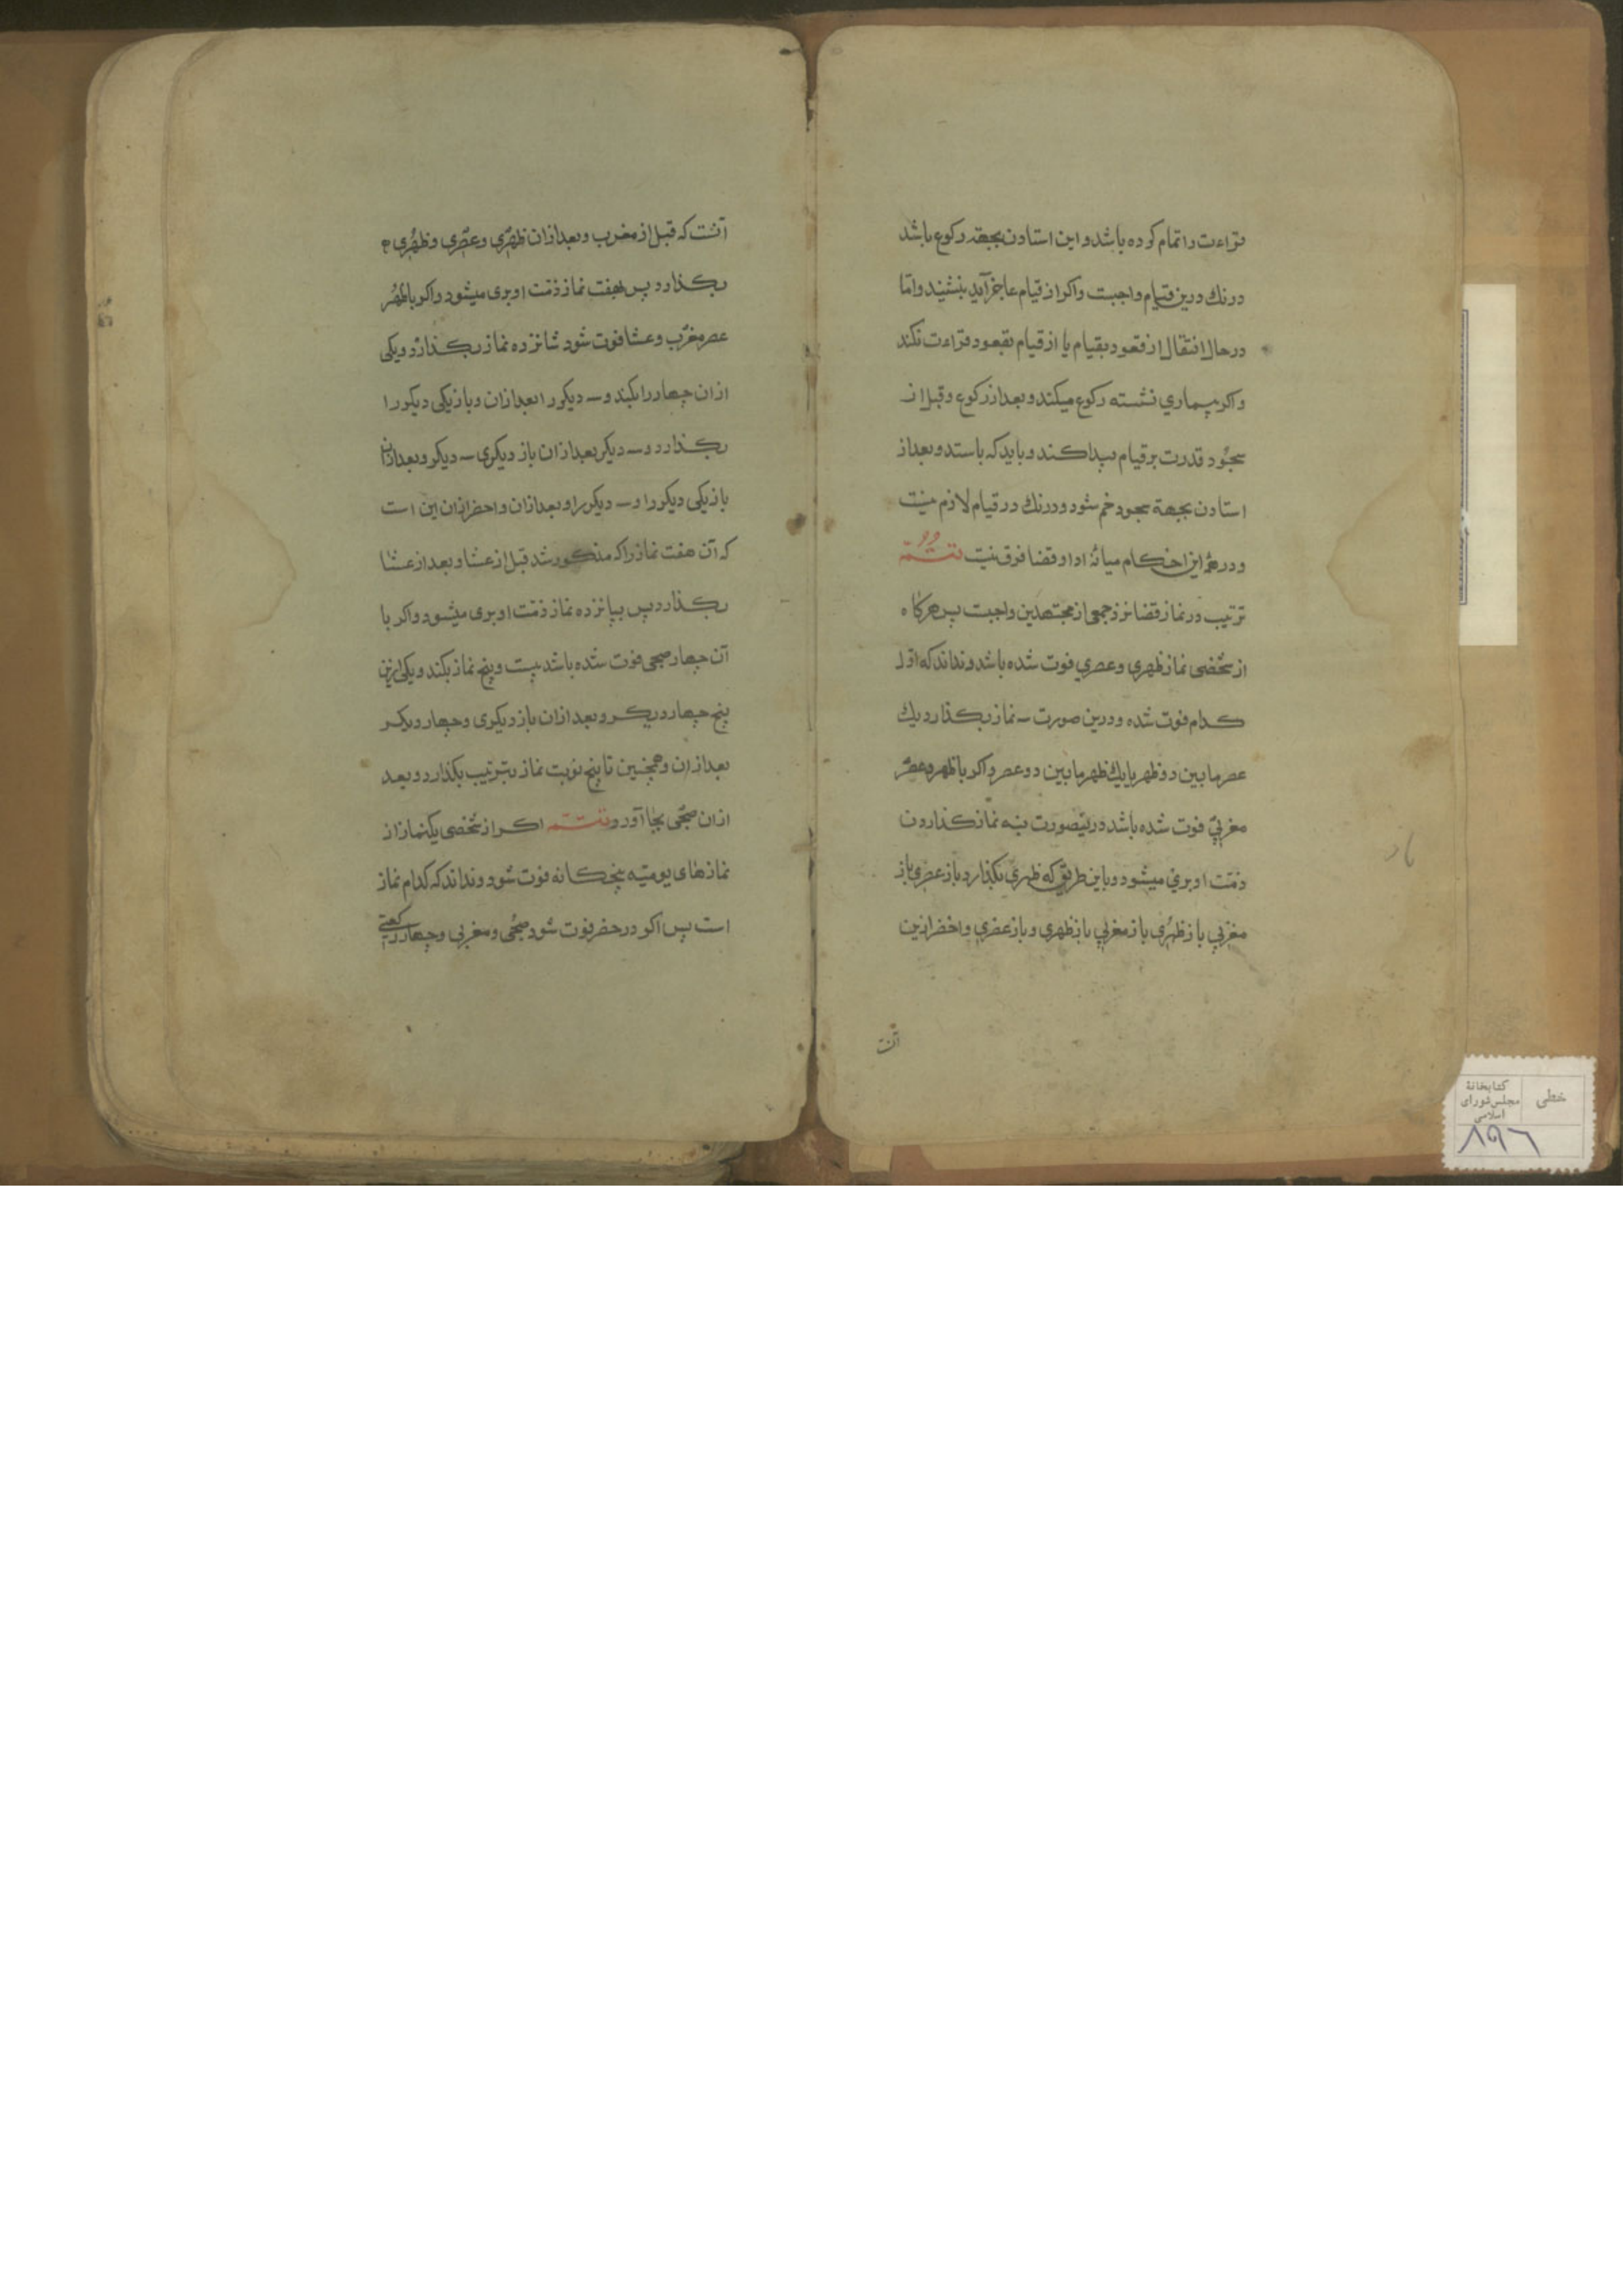 قراءت را تمام کرده باشد و این استادن بجهة رکوع باشد
درنك درین قیام واجبست و اکر از قیام عاجز آید بنشیند و امّا
در حال انتقال از قعود بقیام یا از قیام بقعود قراءت نکند
و اکر بیماری نشسته رکوع میکند و بعد از رکوع و قبل از
سجود قدرت بر قیام پیدا کند و باید که باستد و بعد از
استادن بجهة سجود خم شود و درنك در قیام لازم نیست
و در همۀ این احکام میانۀ ادا و قضا فرق نیست تتمّه
ترتیب در نماز قضا نزد جمعی از مجتهدین واجبست پس هرکاه
از شخصی نماز ظهری و عصری فوت شده باشد و نداند که اوّل
کدام فوت شده و درین صورت سه نماز بکذارد یك
عصر ما بین دو ظهر یا یك ظهر ما بین دو عصر و اکر با ظهر و عصر
مغربی فوت شده باشد درینصورت بنه نماز کذاردن
ذمّت او بری میشود و باین طریق که ظهری بکذارد باز عصری باز
مغربی باز ظهری باز مغربی باز ظهری و باز عصری و اخصر ازین
آنست
آنست که قبل از مغرب و بعد از ان ظهری و عصری و ظهری
بکذارد پس بهفت نماز ذمّت او بری میشود و اکر با ظهر
عصر مغرب و عشا فوت شود شانزده نماز بکذارد و یکی
از ان چهار را بکند و سه دیکر را بعد از ان و باز یکی دیکر را
بکذارد و سه دیکر بعد از ان باز دیکری سه دیکر و بعد از ان
باز یکی دیکر را و سه دیکر را و بعد از ان و اخصر از ان این است
که آن هفت نماز را که مذکور شد قبل از عشا و بعد از عشا
بکذارد پس بپانزده نماز ذمّت او بری میشود و اکر با
آن چهار صبحی فوت شده باشد بیست و پنج نماز بکند و یکی ازین
پنج چهار دیکر و بعد از ان باز دیکری و چهار دیکر
بعد از ان و همچنین تا پنج نوبت نماز بترتیب بکذارد و بعد
از ان صبحی بجا آورد تتمّه اکر از شخصی یکنماز از
نمازهای یومیّه پنجکانه فوت شود و نداند که کدام نماز
است پس اکر در حضر فوت شود صبحی و مغربی و چهار رکعتی
خطی
کتابخانۀ
مجلس شورای
اسلامی
۸۹۶